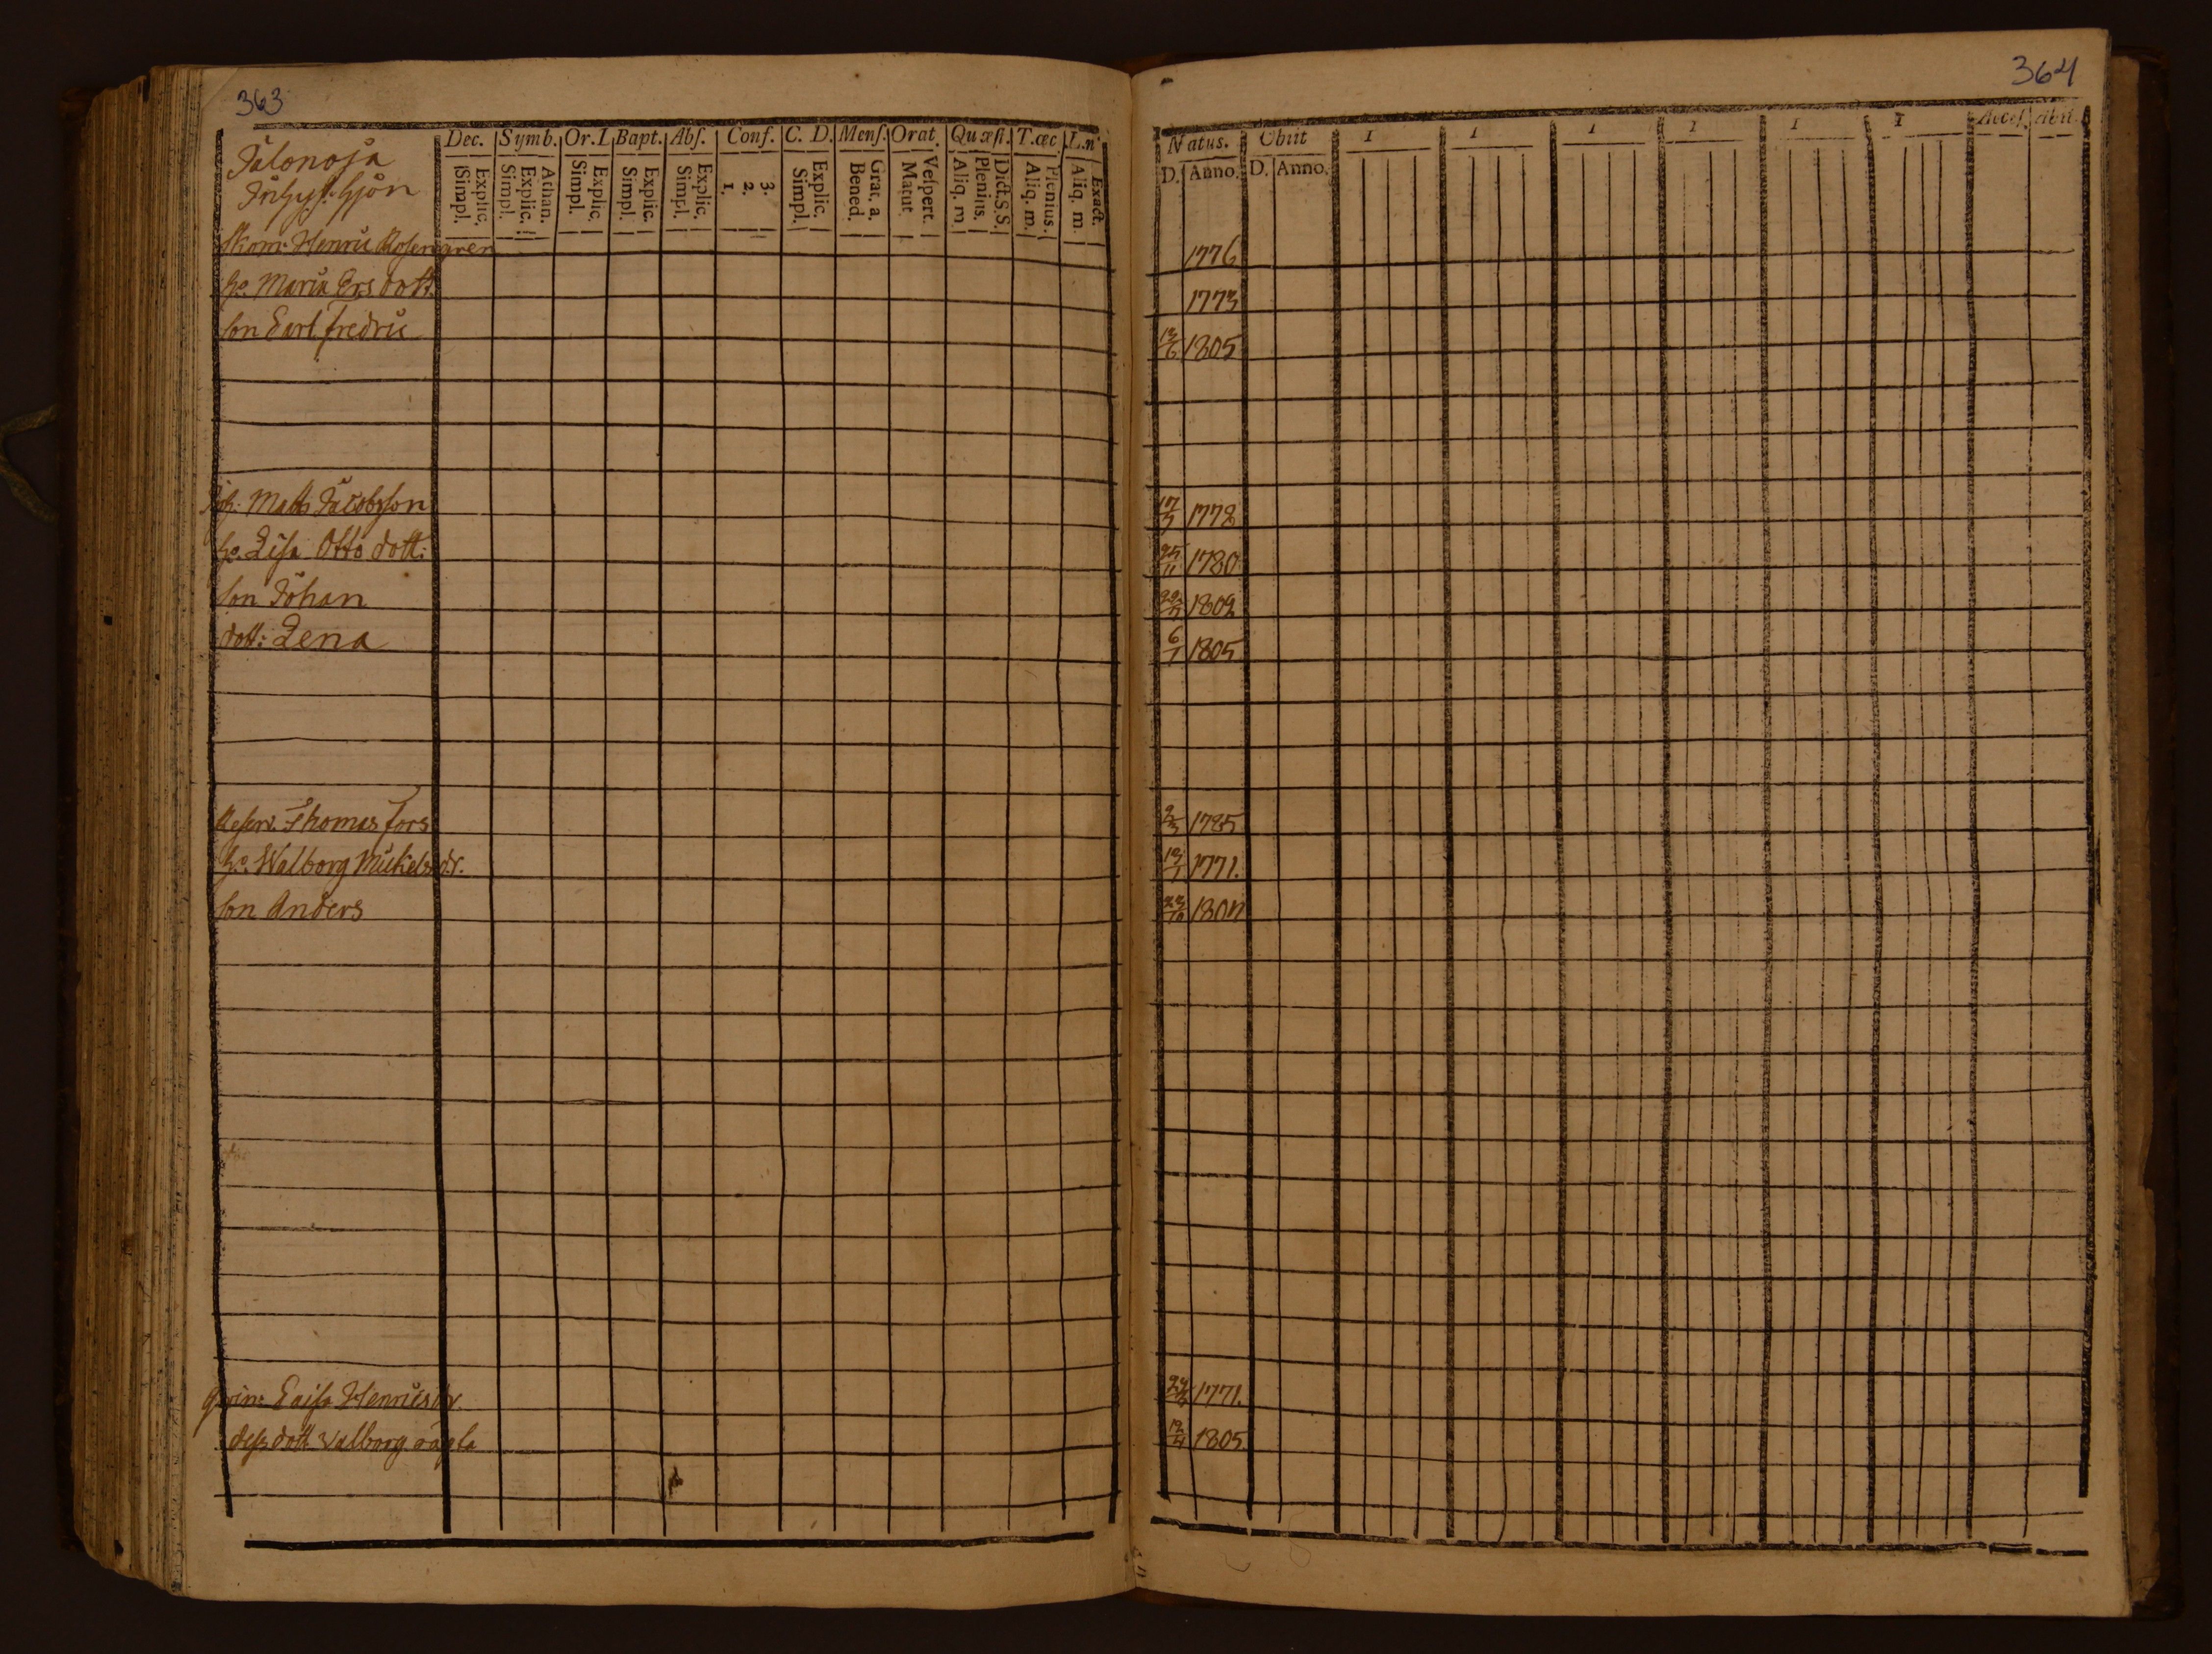 363
Jalonoja
Inhys: hjon
Dec. Symb. Or. I. Bapt. Abſ. Conf. C. D. Menſ. Orat. Quæſt. T. œc. L. n.
Explic. Simpl. Athan. Explic. Simpl. Explic. Simpl. Explic. Simpl. Explic. Simpl. 3. 2. 1. Explic. Simpl. Grat. a. Bened. Veſpert. Matut. Dict. S. S. Plenius. Aliq. m. Plenius. Aliq. m. Exact. Aliq. m.
Skom: Henric Rosengren
h: Maria Ers dott:
son Carl Fredric
Matts Jacobsson
h: Lisa Otto dott:
son Johan
dott: Lena
Reserv: Thomas Fors
h: Walborg Mickels dr.
son Anders
Caisa Henrics dr.
dess dott: Valborg oägta
364
Natus. Obiit 1 1 1 1 1 1 Acceſ. Abit.
D. Anno. D. Anno.
1776
1773
13/6 1805
17/3 1778
25/11 1780
1802
6/1 1805
2/3 1785
1771.
23/10 1804
1771.
1805